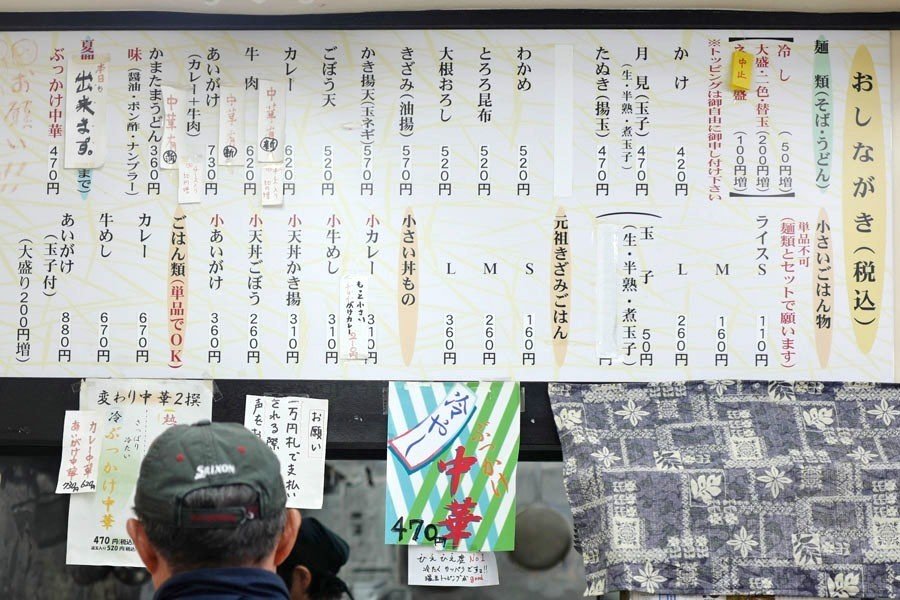 おしながき(税込)
麺類(そば・うどん)
冷し (50円増)
大盛・二色・替玉 (200円増)
盛 (100円増)
中止
※トッピングは御自由に御申し付け下さい
かけ 420円
月見(玉子) 470円
(生・半熟・煮玉子)
たぬき(揚玉) 470円
わかめ 520円
とろろ昆布 520円
大根おろし 520円
きざみ(油揚) 570円
かき揚天(玉ネギ) 570円
ごぼう天 520円
カレー 620円
牛肉 620円
あいがけ 730円
(カレー+牛肉)
かまたまうどん 360円
味(醤油・ポン酢・ナンプラー)
夏品
まで)
本日も
出来ます。
ぶっかけ中華 470円
お願い!!
中華有
中華有
中華有
小さいごはん物
単品不可
(麺類とセットで願います)
ライス S 110円
M 160円
L 260円
玉子 50円
(生・半熟・煮玉子)
元祖きざみごはん
S 160円
M 260円
L 360円
小さい丼もの
小カレー 310円
もっと小さい
小牛めし 310円
小天丼かき揚 310円
小天丼ごぼう 260円
小あいがけ 360円
ごはん類(単品でOK)
カレー 670円
牛めし 670円
あいがけ 880円
(玉子付)
(大盛り200円増)
変わり中華2撰
冷ぶっかけ中華
さっぱり
冷たい
熱
470円(税込)
520円(税込)
カレー中華 620円
あいがけ中華 730円
お願い
一万円札で支払い
される際
声をお
冷やし
ぶっかけ
中華
470円
ひえひえ度No.1
冷たくサッパリです!!
塩玉トッピングがgood
SRIXON